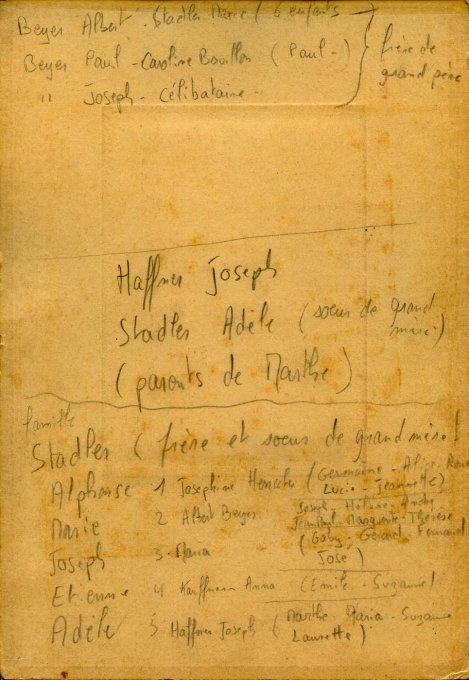 Beyer Albert - Stadler Marie ( 6 enfants
Beyer Paul - Caroline Bouillon ( Paul - )
" Joseph - Célibataire -
frère de
grand père
Haffner Joseph
Stadler Adèle ( soeur de grand
mère )
( parents de Marthe )
famille
Stadler ( frère et soeur de grand mère )
Alphonse 1 Joséphine ( Germaine - Alice -
Lucie - Jeannette )
Marie 2 Albert Beyer Joseph, Hélène, André
Jean Paul Marguerite - Thérèse
Joseph 3 - Maria ( Gaby - Gérard Fernand
José )
Etienne 4 Kauffmann Anna ( Emile - Suzanne )
Adèle 5 Haffner Joseph ( Marthe Maria - Suzanne
Laurette )